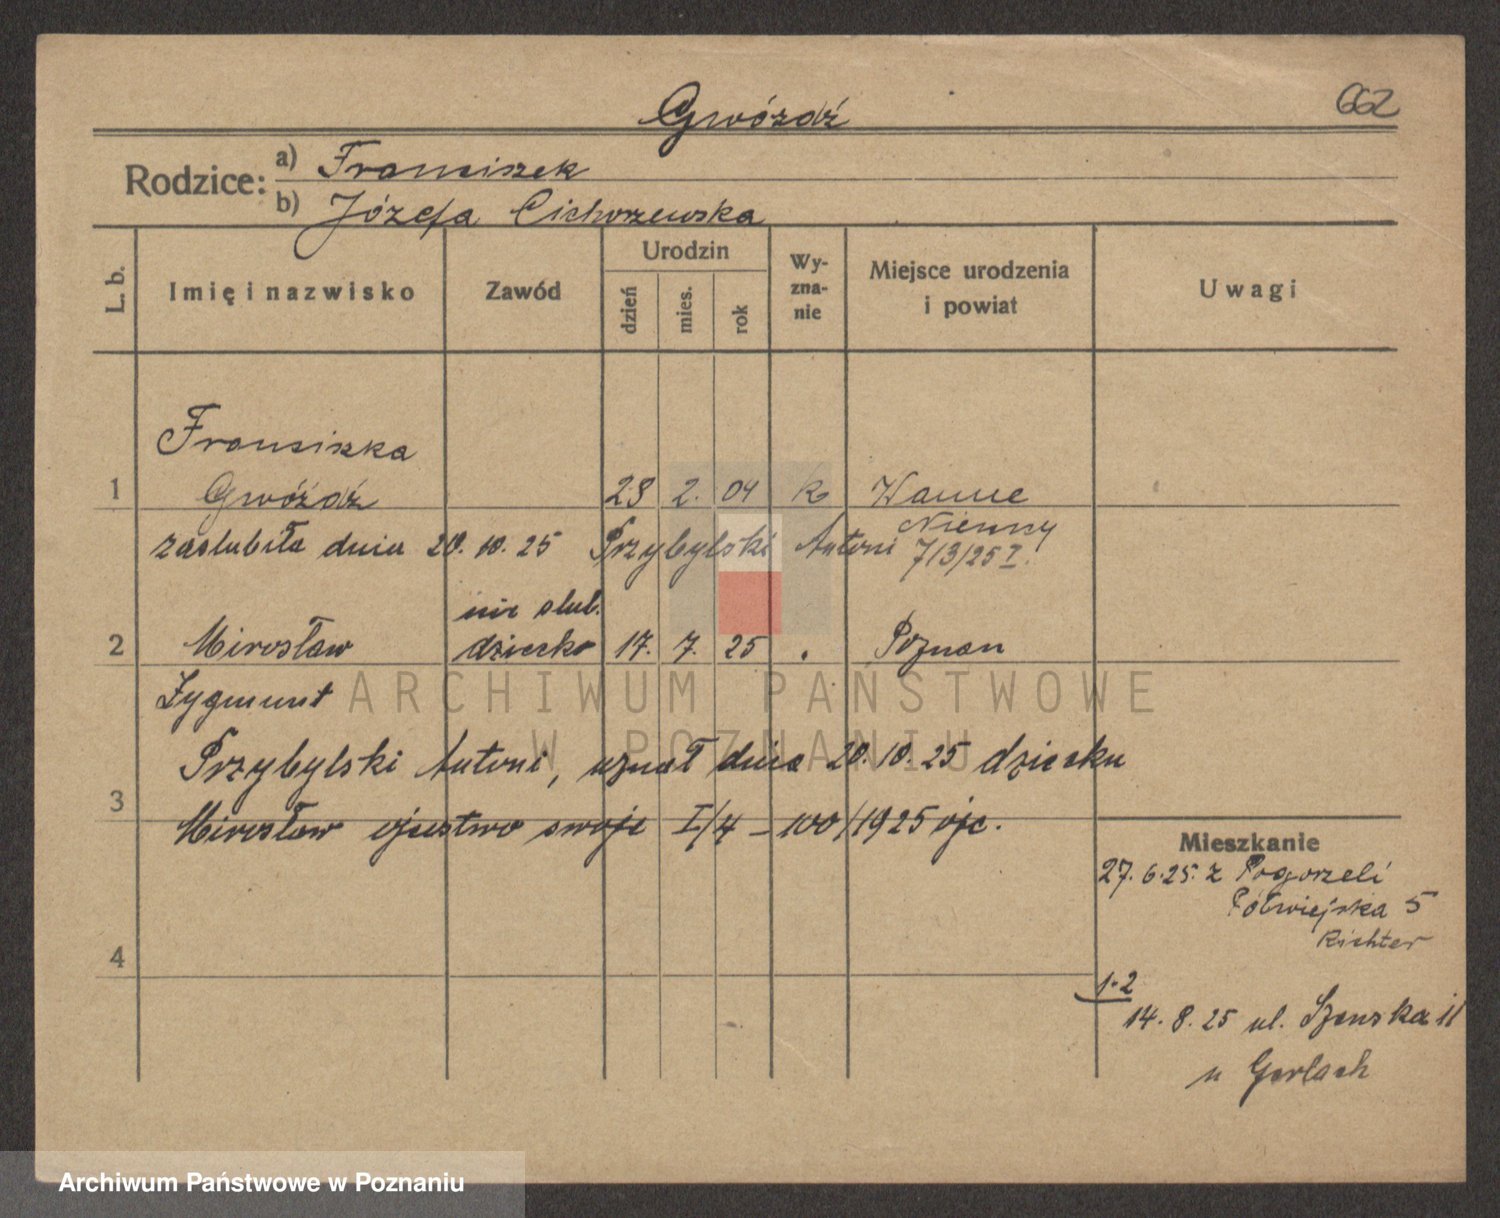 Gwóźdź
662
Rodzice:
a) Franciszek
b) Józefa Cichorzewska
L. b.
Imię i nazwisko
Zawód
Urodzin
dzień
mies.
rok
Wy-
zna-
nie
Miejsce urodzenia
i powiat
Uwagi
Franciszka
1 Gwóźdź 23 2. 04 k Wanne
Niemny
zaślubiła dnia 20. 10. 25 Przybylski Antoni 7/3/25 I.
nie ślub.
2 Mirosław dziecko 17. 7. 25 . Poznan
Zygmunt
ARCHIWUM PAŃSTWOWE
W POZNANIU
Przybylski Antoni, uznał dnia 20. 10. 25 dziecku
3
Mirosław ojcostwo swoje I/4 – 100/1925 ojc.
Mieszkanie
27. 6. 25. z Pogorzeli
Półwiejska 5
Richter
4
1-2
14. 8. 25 ul. Szewska 11
u Gerlach
Archiwum Państwowe w Poznaniu